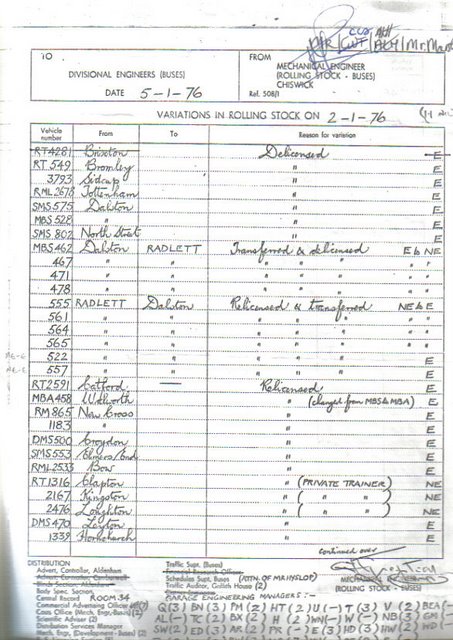 CUS ALH
PJR/GWT/ALH/Mr. Mars
TO FROM
DIVISIONAL ENGINEERS (BUSES) MECHANICAL ENGINEER
(ROLLING STOCK - BUSES)
CHISWICK
DATE 5-1-76 Ref. 508/1
VARIATIONS IN ROLLING STOCK ON 2-1-76
Vehicle number From To Reason for variation
RT 4281 Brixton Delicensed E
RT 549 Bromley " E
3793 Sidcup " E
RML 2678 Tottenham " E
SMS 575 Dalston " E
MBS 528 " " E
SMS 802 North Street " E
MBS 462 Dalston RADLETT Transferred & delicensed E to NE
467 " " " " " " "
471 " " " " " " "
478 " " " " " " "
555 RADLETT Dalston Relicensed & transferred NE to E
561 " " " " " " "
564 " " " " " " "
565 " " " " " " "
522 " " " " " E
557 " " " " " E
RT 2591 Catford — Relicensed E
MBA 458 Walworth " (changed from MBS to MBA) E
RM 865 New Cross " E
1183 " " E
DMS 500 Croydon " E
SMS 553 Elmers End " E
RML 2533 Bow " E
RT 1316 Clapton " (PRIVATE TRAINER) NE
2167 Kingston " ( " " ) NE
2476 Loughton " ( " " ) NE
DMS 470 Leyton " E
1339 Hornchurch " E
continued over
DISTRIBUTION
Advert, Controller, Aldenham
Advert, Controller, Camberwell
Blinds Section, Aldenham
Body Spec. Section
Central Record ROOM 34
Commercial Advertising Officer
Coras Office (Mech. Engr. Buses)
Scientific Adviser (2)
Distribution Services Manager
Mech. Engr. (Development - Buses) (2)
Traffic Supt. (Buses)
Financial Research Officer
Schedules Supt. Buses (ATTN. OF MR HYSLOP)
Traffic Auditor, Griffith House (2)
MECHANICAL ENGINEER
GARAGE ENGINEERING MANAGERS :-
Q(3) BN(3) PM(2) HT(2) U(-) T(3) V(2) BEA(-)
AL(-) TC(2) BX(2) H(2) WN(-) W(-) NB(3) GM(
SW(2) ED(3) AR(2) PR(-) E(3) HD(3) HW(2) HWD(-)